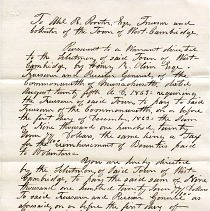 To Abel R. Proctor Esqr. Treasurer and
Collector of the Town of West Cambridge
Pursuant to a Warrant directed
to the Selectmen of said Town of West
Cambridge, by Henry K. Oliver Esqr
Treasurer and Receiver General of the
Commonwealth of Massachusetts, dated
August 1863 requiring
the Treasurer of said Town, to pay to said
Treasurer of the Commonwealth, on or before
the first day of December, 1863, the Sum
of Nine thousand one hundred twenty
Dollars, the same being a Tax
for the reimbursement of Bounties paid
to Volunteers.
You are hereby directed
by the Selectmen of said Town of West
Cambridge to pay the said sum of Nine
thousand one hundred twenty Dollars
To said Treasurer and Receiver General as
aforesaid, on or before the first day of